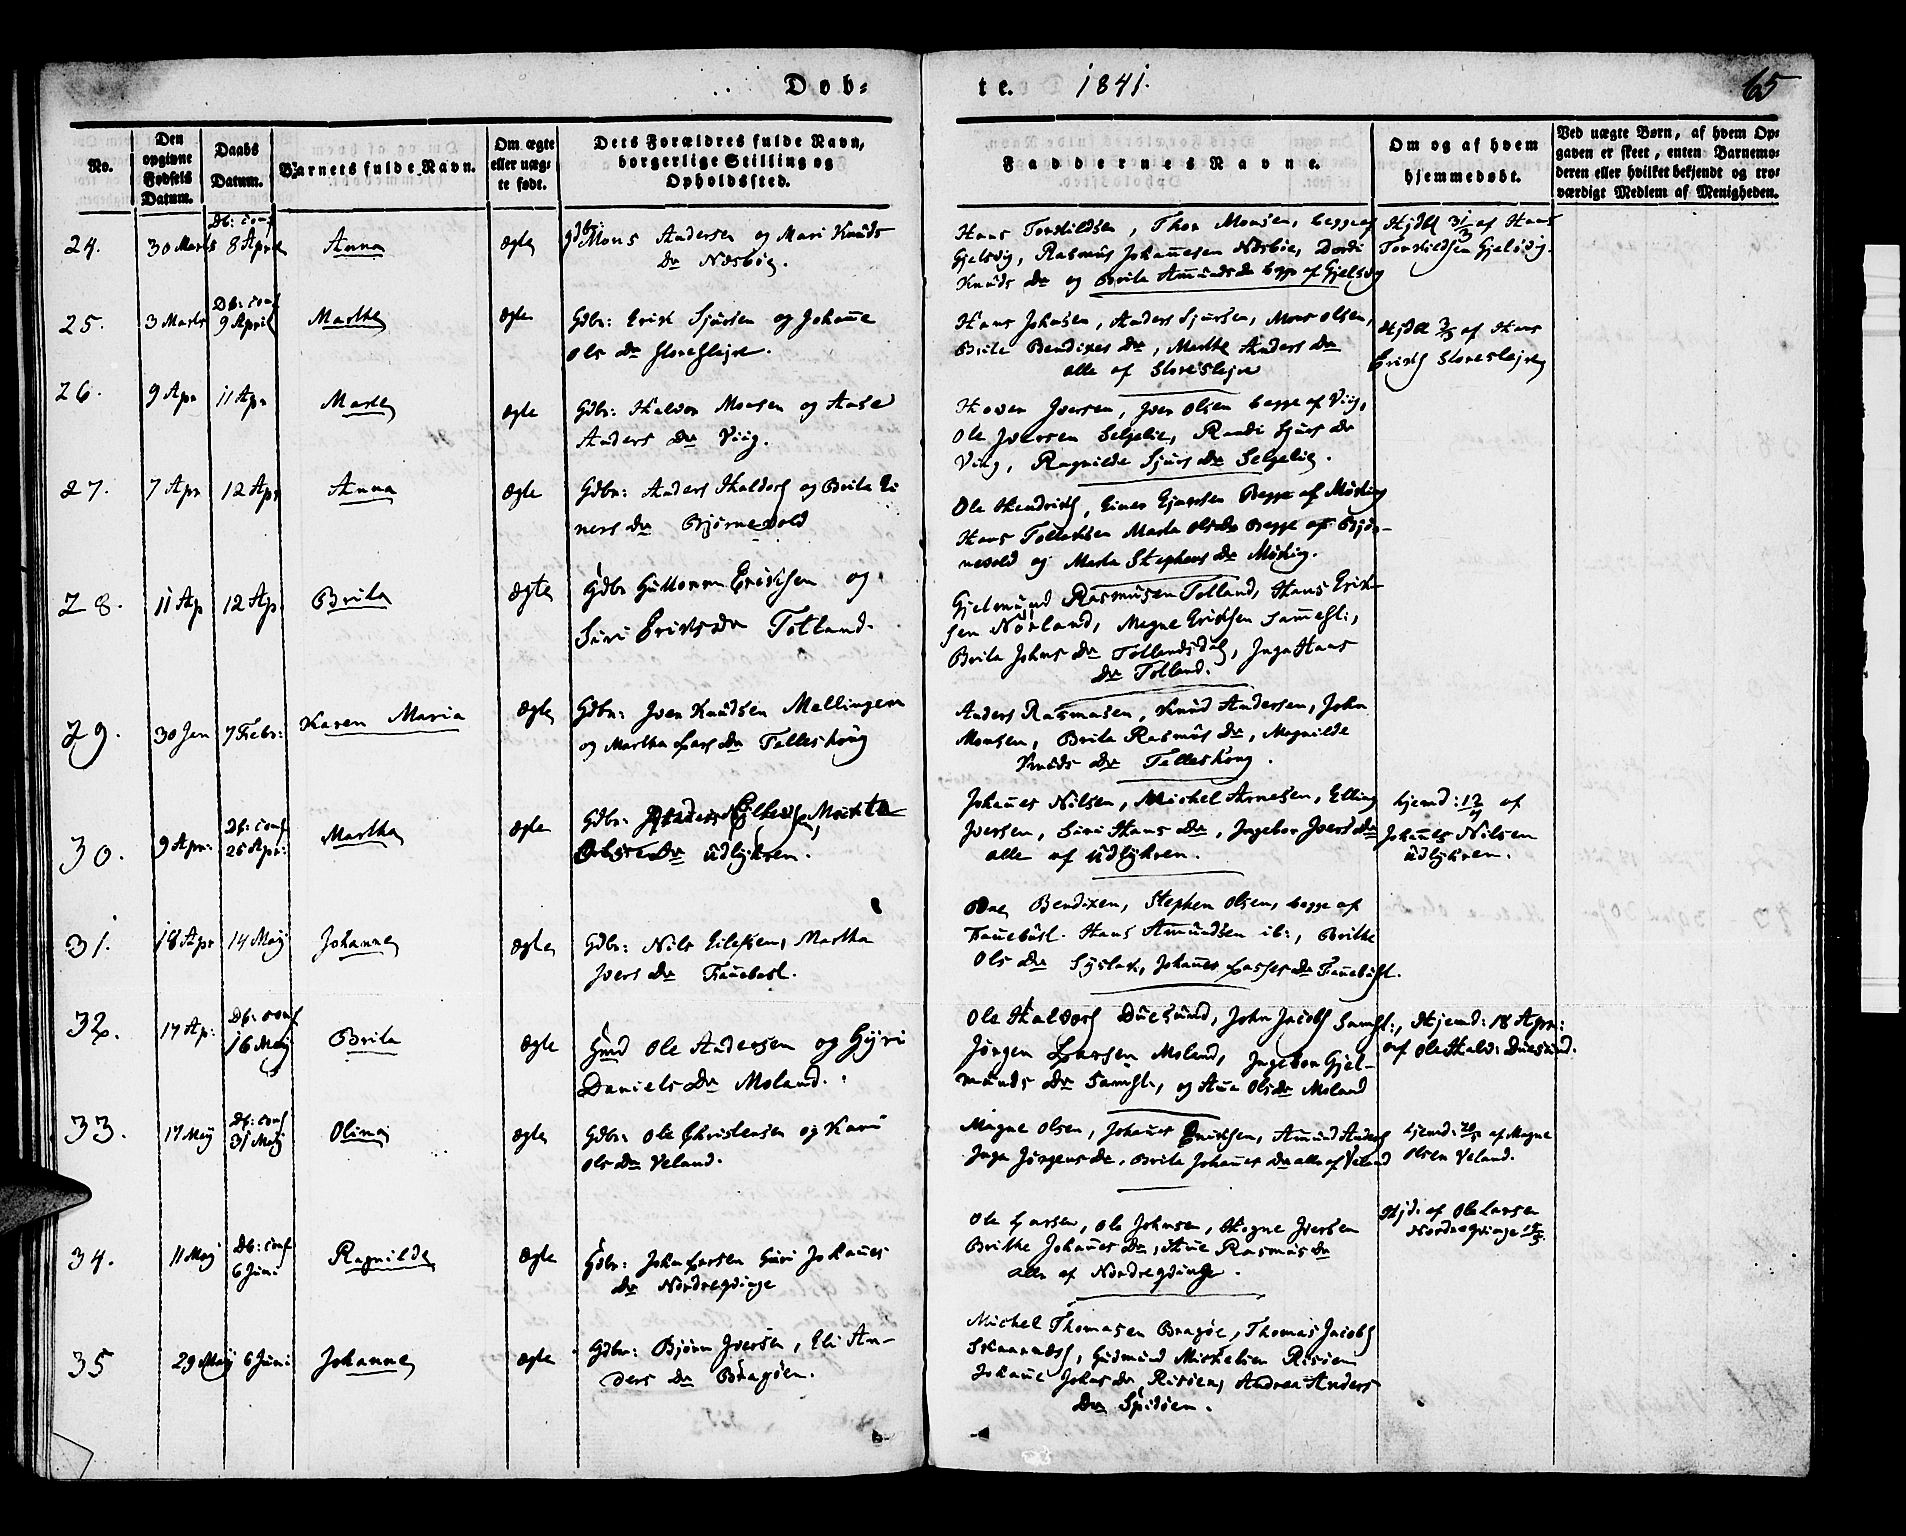 Døb=
te. 1841.
65
No.
Den opgivne Fødsels Datum.
Daabs Datum.
Barnets fulde Navn.
Om ægte eller uægte født.
Dets Forældres fulde Navn, borgerlige Stilling og Opholdssted.
Faddernes Navne.
Om og af hvem hjemmedøbt.
Ved uægte Børn, af hvem Opgaven er skeet, enten Barnemoderen eller hvilket bekjendt og troværdigt Medlem af Menigheden.
24. 30 Marts Db: conf 8 April Anna Ægte
Gdbr Mons Andersen og Mari Knuds
Dr Næsbøe.
Hans Torkildsen, Thor Monsen, begge af
Gjelsvig, Rasmus Johannesen Næsbøe, Dordi
Knuds Dr og Brita Amunds Dr begge af Gjelsvig
Hjdbt 31/3 af Hans
Torkildsen Gjelsvig.
25. 3 Marts Db: conf 9 April Marthe Ægte
Gdbr: Erik Sjursen og Johanne
Ols Dr Storeslejre.
Hans Johnsen, Anders Sjursen, Mons Olsen,
Brite Bendixes Dr, Marthe Anders Dr
alle af Storeslejre
Hjdbt 3/3 af Hans
Eriks Storeslejre
26. 9 Apr 11 Apr Marte Ægte
Gdbr: Halvor Monsen og Anse
Anders Dr Viig.
Haven Iversen, Iver Olsen begge af Viig,
Ole Iversen Seljelie, Randi Sjurs Dr
Viig, Ragnilde Sjurs Dr Selgelie.
27. 7 Apr 12 Apr Anna Ægte
Gdbr: Anders Haldors og Brita Ei
ners Dr Bjørnevold
Ole Hendriks, Einer Ejnersen Begge af Møsting
Hans Tollaksen Marta Ols Dr Begge af Bjør-
nevold og Marta Stephens Dr Møsting.
28. 11 Ap 12 Ap. Brita Ægte
Gdbr Guttorm Eriksen og
Siri Eriks Dr Totland.
Gjelmund Rasmusen Totland, Hans Erik-
sen Nørland, Magne Eriksen Sammest:,
Brita Johns Dr Totlandsdal, Inga Hans
Dr Totland.
29. 30 Jan 7 Febr: Karen Maria Ægte
Gdbr: Iver Knudsen Mellingen
og Martha Lars Dr Telleshoug
Anders Rasmusen, Knud Andersen, John
Monsen, Brita Rasmus Dr, Magnilde
Knuds Dr Telleshoug.
30. 9 Apr: Db: conf 25 Apr: Martha Ægte
Gdbr: Marta
Dr Udlykren.
Johannes Nilsen, Michel Arnesen, Elling
Iversen, Siri Hans Dr, Ingebor Ivers Dr
alle af Udlykren.
hjemd: 12/4 af
Johannes Nilsen
Udlykren.
31. 18 Apr 14 Maj Johanne Ægte
Gdbr: Nils Eilefsen, Martha
Ivers Dr Tannebost.
Bendixen, Stephen Olsen, begge af
Hans Amundsen ib:, Brithe
Ols Dr
32. 17 Ap: Db: conf 16 Maj Brita Ægte
Gmd Ole Andersen og Gyri
Daniels Dr Moland.
Ole Halvors Duesund, John Jacobs Samst:,
Jørgen Larsen Moland, Ingebor Gjel-
munds Dr Samst:, og Ane Ols Dr Moland
Hjemd: 18 Apr:
af Ole Hald: Duesund.
33. 17 Maj Db: conf 31 Maj Olina Ægte
Gdbr: Ole Christensen og Kari
Ols Dr Veland.
Magne Olsen, Johannes Eriksen, Amund Anders
Inga Jørgens Dr, Brita Johannes Dr alle af Veland
hjemd: 20/5 af Magne
Olsen Veland.
34. 11 Maj Db: conf 6 Juni Ragnilde Ægte
Gdbr: John Larsen Guri Johannes
Dr Nordreqvinge
Ole Larsen, Ole Johnsen, Hogne Iversen
Brithe Johannes Dr, Ane Rasmus Dr
alle af Nordreqvinge.
Hjd. af Ole Larsen
Nordreqvinge 15/5.
35 29 Maj 6 Juni Johanne Ægte
Gdbr: Bjørn Iversen, Eli An-
ders Dr Bragøen.
Michel Thomasen Bragøe, Thomas Jacobs
Gudmund Mickelsen Risøen
Johanne Johns Dr Risøen, Andrea Anders
Dr Spidsøen.